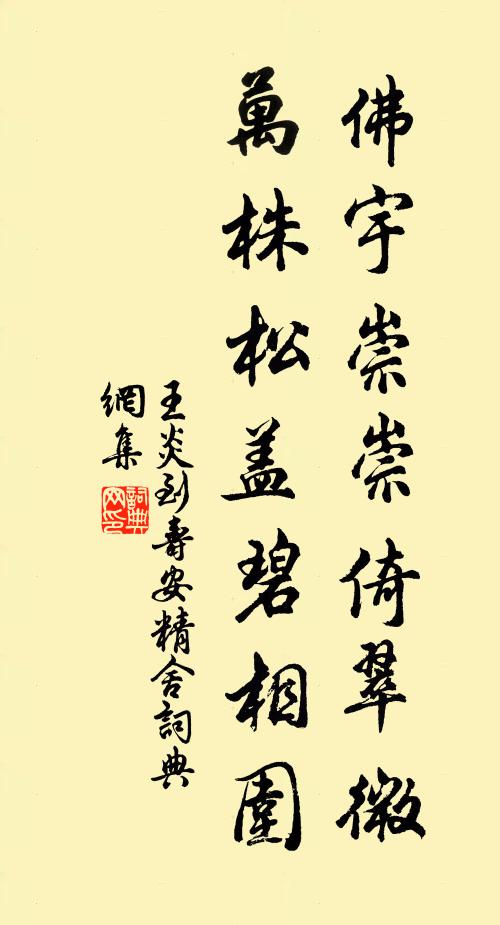 佛宇崇崇倚翠微
萬株松盖碧相圍
王炎到壽安精舍詞典
網集
詞典網印